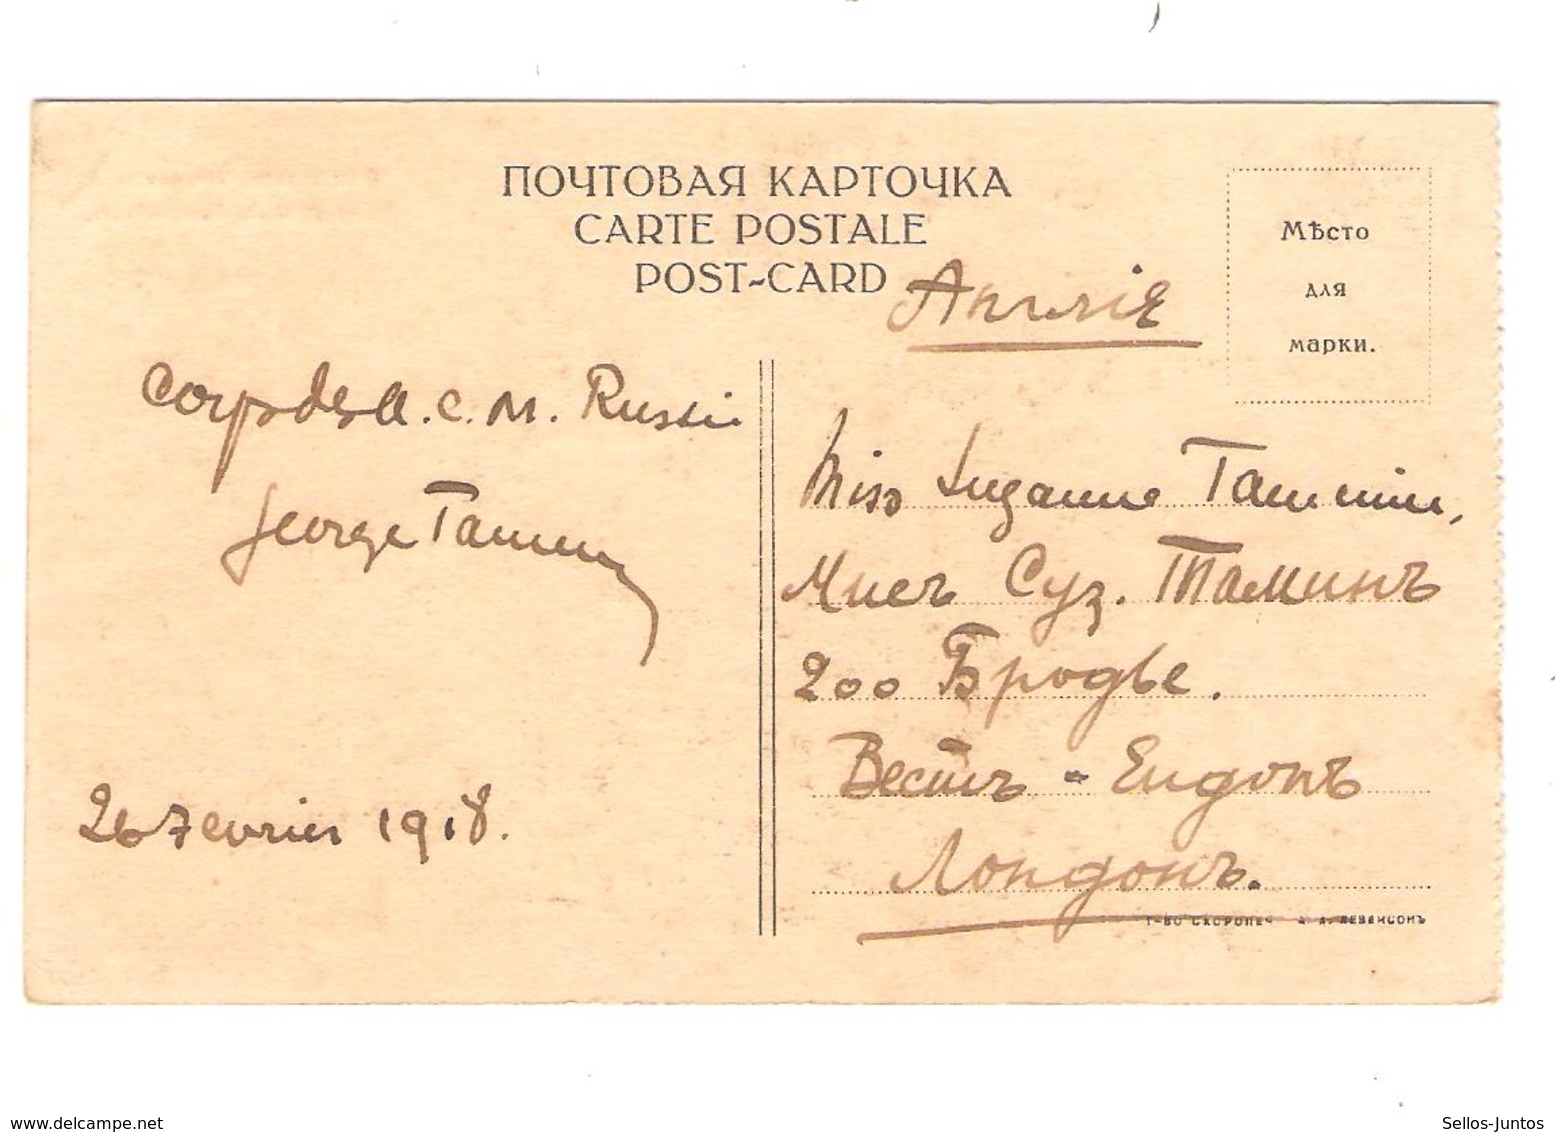 ПОЧТОВАЯ КАРТОЧКА
CARTE POSTALE
POST-CARD
Мѣсто
для
марки.
Англія
Corps des A.C.M. Russie
George Tammin
26 Fevrier 1918.
Miss Suzanne Tammin,
Мисъ Суз. Таминъ
200 Бродве.
Вестъ - Ендонъ
Лондонъ.
Т-ВО СКОРОПЕЧ А. А. ЛЕВЕНСОНЪ
www.delcampe.net
Sellos-Juntos